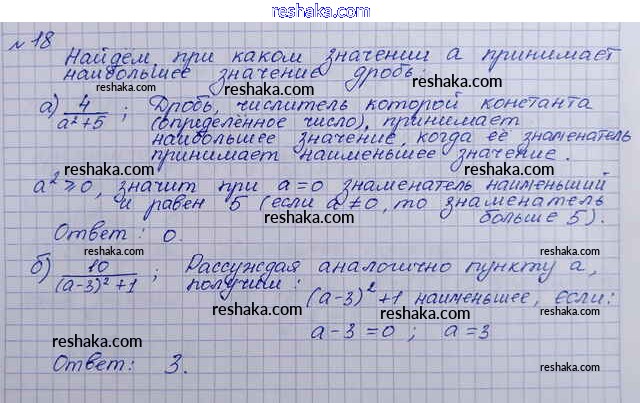 reshaka.com
№ 18
Найдём, при каком значении a принимает
наибольшее значение дробь:
reshaka.com
а) 4/(a²+5) ; Дробь, числитель которой константа
(определённое число), принимает
reshaka.com
наибольшее значение, когда её знаменатель
принимает наименьшее значение.
reshaka.com reshaka.com
a² ≥ 0, значит при a=0 знаменатель наименьший
и равен 5 (если a ≠ 0, то знаменатель
reshaka.com
больше 5).
Ответ: 0.
reshaka.com reshaka.com
б) 10/((a-3)²+1) ; Рассуждая аналогично пункту а,
получим:
reshaka.com
(a-3)²+1 наименьшее, если:
reshaka.com reshaka.com
a-3=0 ; a=3
Ответ: 3.
reshaka.com
reshaka.com
reshaka.com